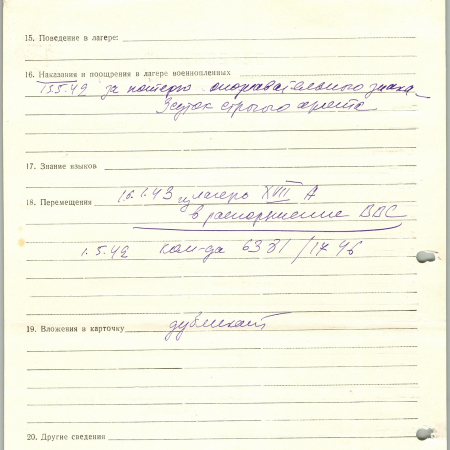 15. Поведение в лагере:
16. Наказания и поощрения в лагере военнопленных
13.5.42 за потерю опознавательного знака
3 суток строгого ареста
17. Знание языков
18. Перемещения 16.1.43 из лагеря XVIII А
в распоряжение ВВС
1.5.42 ком-да 6381/17 46
19. Вложения в карточку дубликат
20. Другие сведения